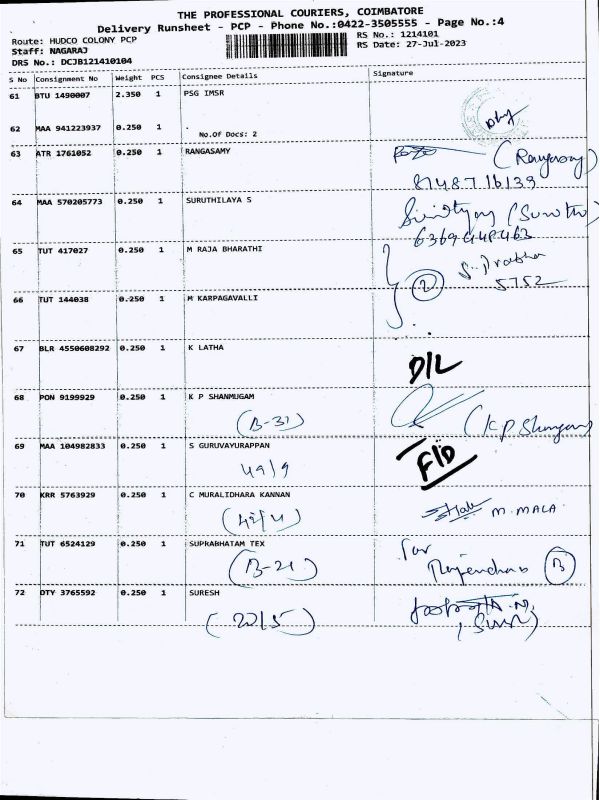 THE PROFESSIONAL COURIERS, COIMBATORE
Delivery Runsheet - PCP - Phone No.:0422-3505555 - Page No.:4
Route: HUDCO COLONY PCP RS No.: 1214101
Staff: NAGARAJ RS Date: 27-Jul-2023
DRS No.: DCJB121410104
S No Consignment No Weight PCS Consignee Details Signature
61 BTU 1490007 2.350 1 PSG IMSR
62 MAA 941223937 0.250 1 .
No.Of Docs: 2
63 ATR 1761052 0.250 1 RANGASAMY
8748716139
64 MAA 570205773 0.250 1 SURUTHILAYA S
6369448463
65 TUT 417027 0.250 1 M RAJA BHARATHI
S. Prabha
2 5752
66 TUT 144038 0.250 1 M KARPAGAVALLI
67 BLR 4550608292 0.250 1 K LATHA
D/L
68 PON 9199929 0.250 1 K P SHANMUGAM
(B-31)
69 MAA 104982833 0.250 1 S GURUVAYURAPPAN
49/9 F/D
70 KRR 5763929 0.250 1 C MURALIDHARA KANNAN
M. MALA
71 TUT 6524129 0.250 1 SUPRABHATAM TEX
For
(B-21) B
72 DTY 3765592 0.250 1 SURESH
(20/5)